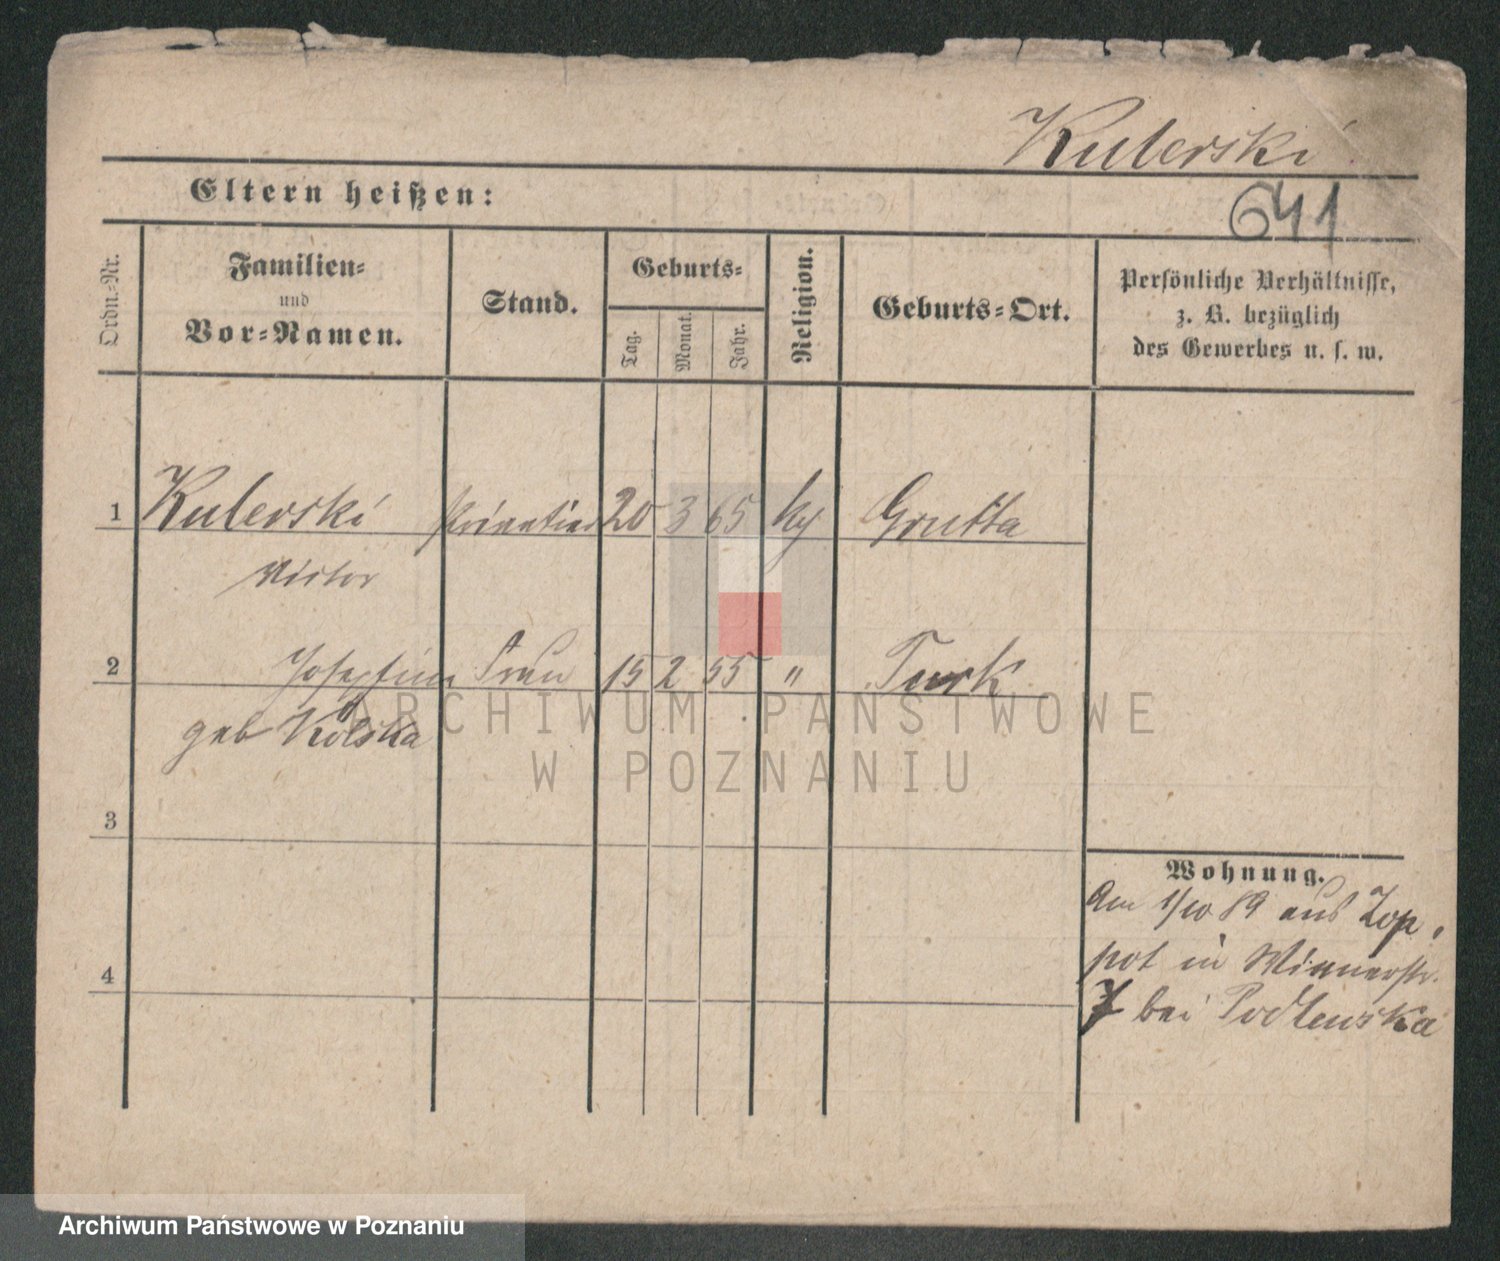 Kulerski
641
Eltern heißen:
Ordn.-Nr.
Familien-
und
Vor-Namen.
Stand.
Geburts-
Tag.
Monat.
Jahr.
Religion.
Geburts-Ort.
Persönliche Verhältnisse,
z. B. bezüglich
des Gewerbes u. s. w.
1 Kulerski 20 3 65 Grutta
Victor
2 Josephine Frau 15 2 55 " Turk
geb Kolska
3
4
Wohnung.
Am 1/10 89 aus Zop-
pot in Wienerstr.
7 bei Podlewska
ARCHIWUM PAŃSTWOWE
W POZNANIU
Archiwum Państwowe w Poznaniu